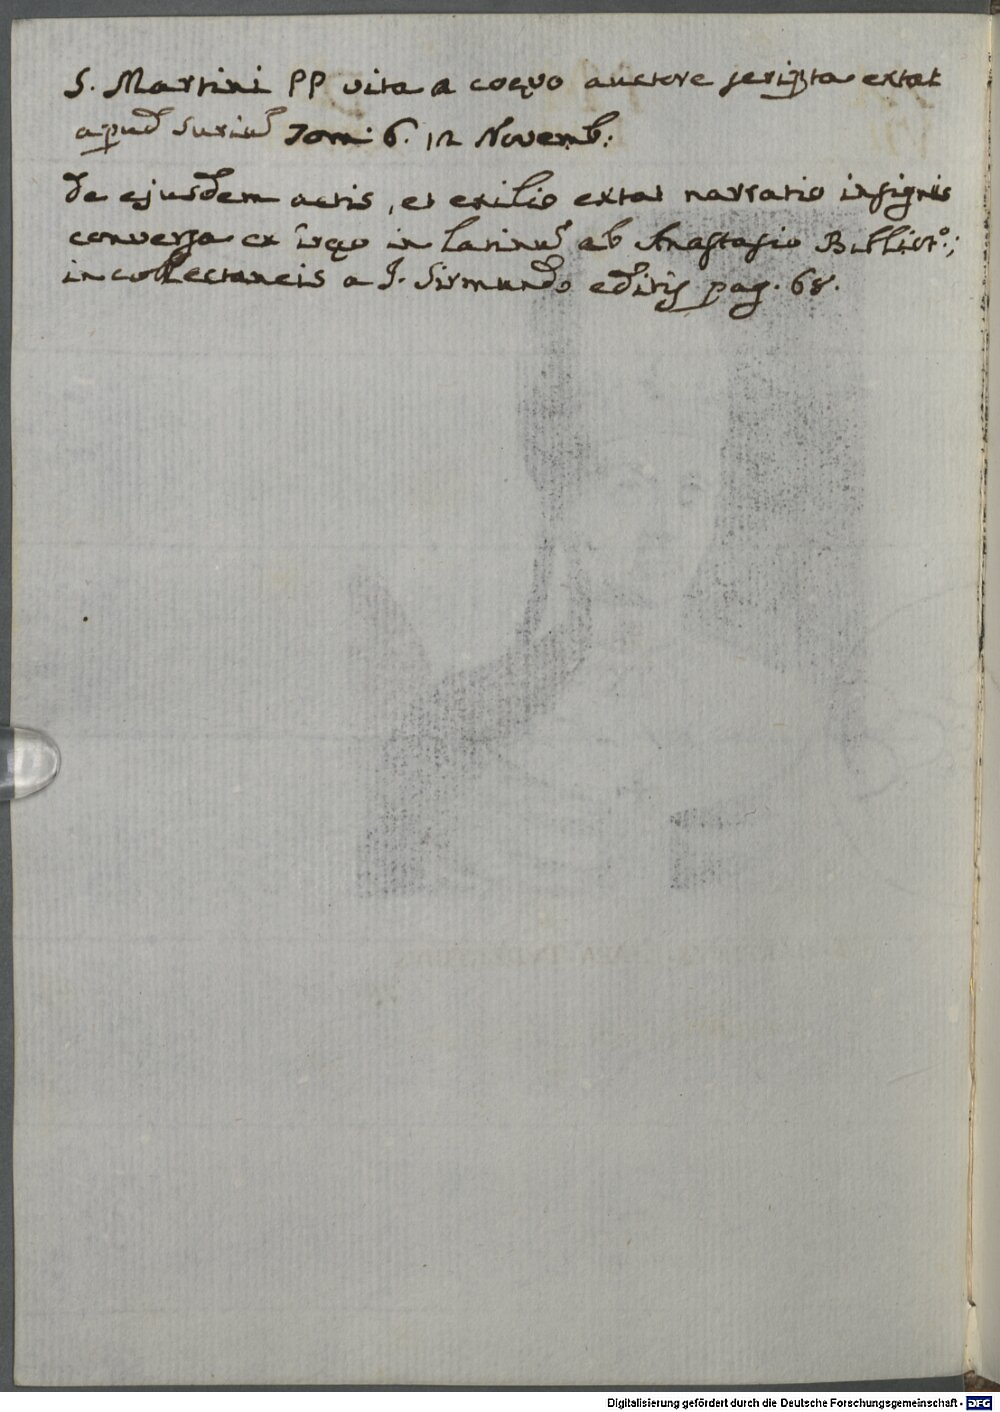 S. Martini PP vita a coævo auctore scripta extat
apud Suriũ Tom: 6. 12 Novemb:
de ejusdem actis, et exilio extat narratio insignis
conversa ex in latinũ ab Anastasio Bibliot.º;
in collectaneis a J. Sirmundo editis pag. 68.
Digitalisierung gefördert durch die Deutsche Forschungsgemeinschaft - DFG